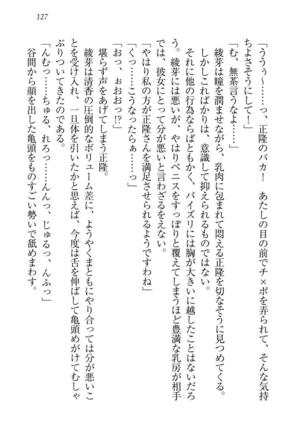 127
「ううぅ~……っ。正隆のバカ! あたしの目の前でチ×ポを弄られて、そんな気持
ちよさそうにして!」
「な、無茶言うなよ……っ」
綾芽は瞳を潤ませながら、乳肉に包まれて悶える正隆をそしるように見つめてくる。
しかしこればかりは、意識して抑えられるものではない。
それに他の行為ならばともかく、パイズリには胸が大きいに越したことはないだろ
う。綾芽には悪いが、やはりペニスをすっぽりと覆えてしまうほど豊満な乳房が相手
では、彼女にとって分が悪いと言わざるをえない。
「やはり私の方が正隆さんを満足させられるようですわね」
「くっ……こうなったらぁ……っ」
「おっ、ぉおおお!?」
堪らず声をあげてしまう正隆。
綾芽は清香の圧倒的なボリューム差に、ようやくまともにやり合っては分が悪いこ
とを受け入れ、一旦体を引いたかと思えば、今度は舌を伸ばして亀頭めがけてむしゃ
ぶりついてきたのである。
「んむっ……ちゅる、れろっ……んんっ、じゅるっ、んふっ」
谷間から顔を出す亀頭をものすごい勢いで舐めまわす。